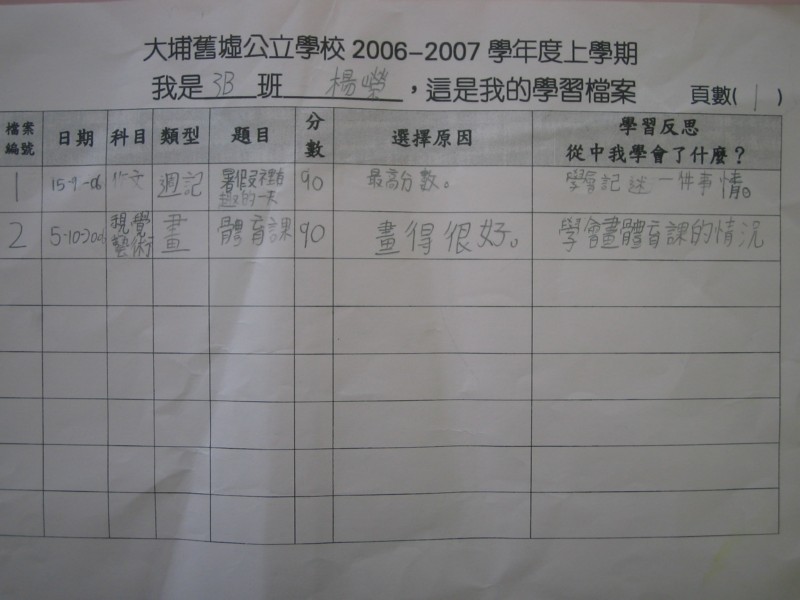 大埔舊墟公立學校 2006-2007 學年度上學期
我是 3B 班 楊嶸，這是我的學習檔案 頁數( 1 )
檔案編號 日期 科目 類型 題目 分數 選擇原因 學習反思 從中我學會了什麼？
1 15-9-06 作文 週記 暑假裡 的一天 90 最高分數。 學會記述一件事情。
2 5-10-2006 視覺藝術 畫 體育課 90 畫得很好。 學會畫體育課的情況